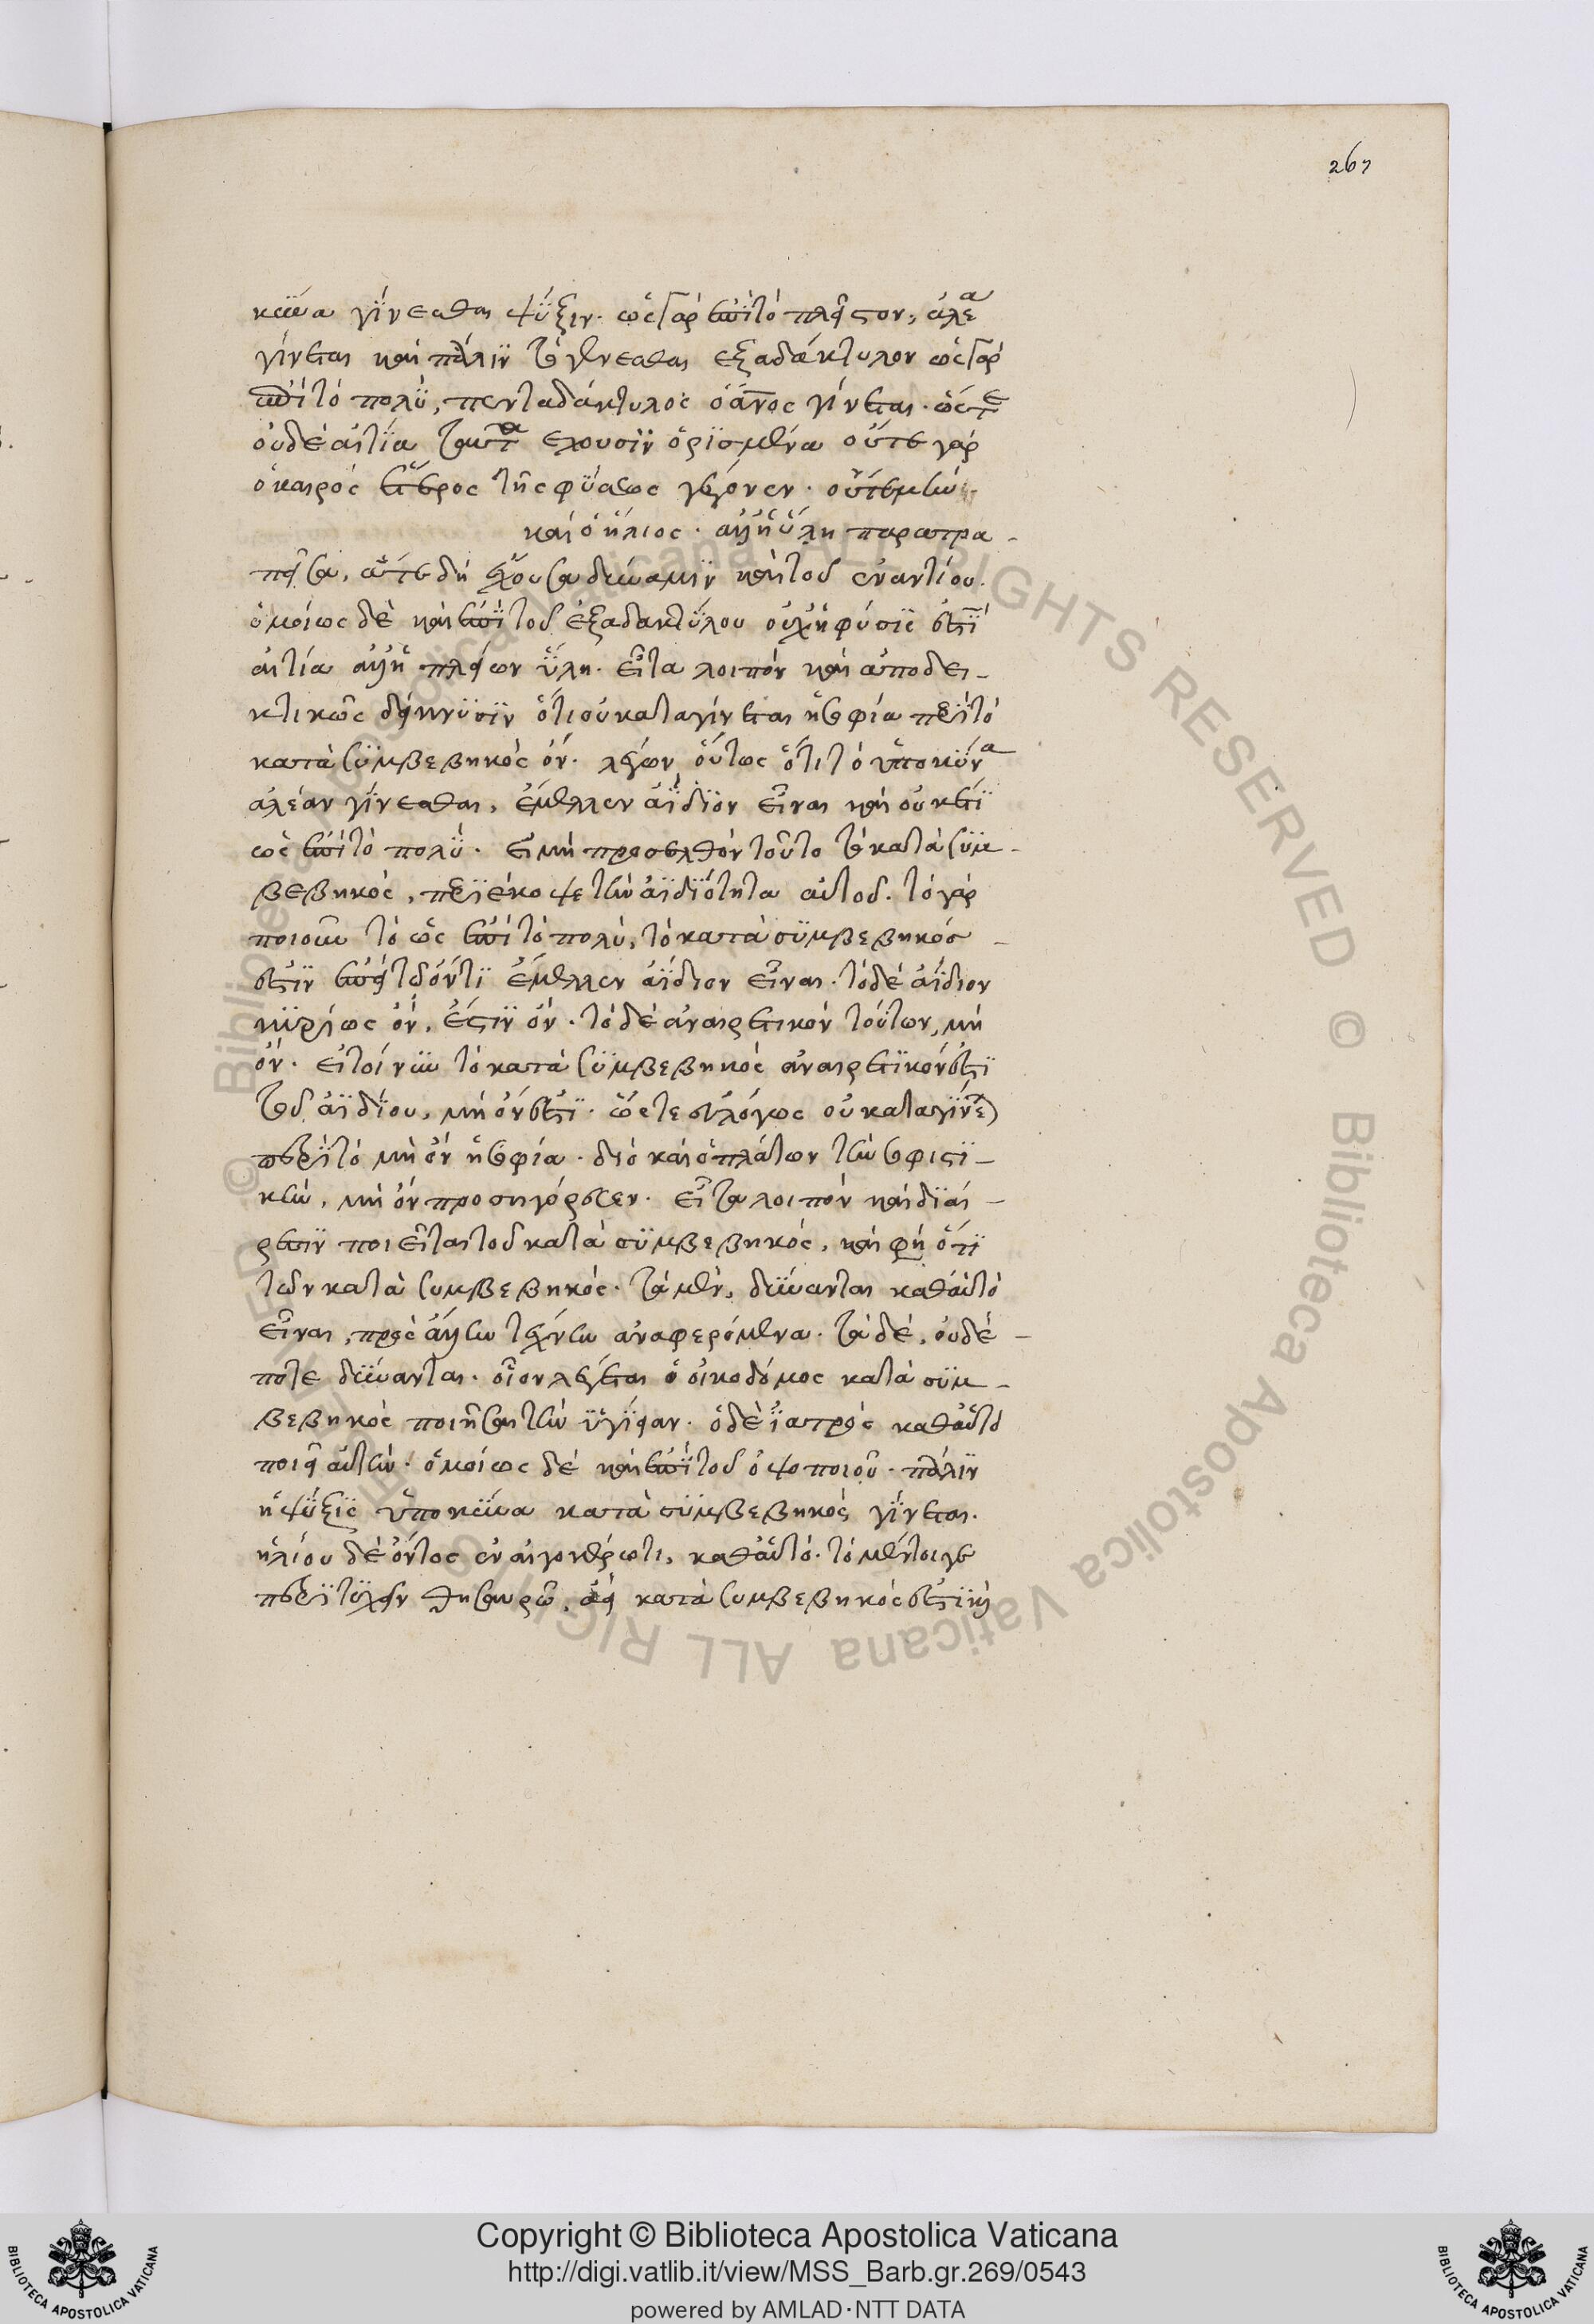 267
κύνα γίνεσθαι ψύξιν. ὡς γὰρ ἐπὶ τὸ πλεῖστον, ἀλέα
γίνεται καὶ πάλιν τὸ γίνεσθαι ἑξαδάκτυλον ὡς γὰρ
ἐπὶ τὸ πολύ, πενταδάκτυλος ὁ ἄνος γίνεται. ὥστε
οὐδὲ αἰτία ταῦτα ἔχουσιν ὁρισμένα οὔτε γὰρ
ὁ καιρὸς ἕτερος τῆς φύσεως γέγονεν. οὔτε μὴν
καὶ ὁ ἥλιος. ἀλλ' ἡ ὕλη παρατρα-
πεῖσα, ἅτε δὴ ἔχουσα δύναμιν καὶ τοῦ ἐναντίου.
ὁμοίως δὲ καὶ ἐπὶ τοῦ ἑξαδακτύλου οὐχ ἡ φύσις ἐστὶ
αἰτία ἀλλ' ἡ πλείων ὕλη. εἶτα λοιπὸν καὶ ἀποδει-
κτικῶς δείκνυσιν ὅτι οὐ καταγίνεται ἡ σοφία περὶ τὸ
κατὰ συμβεβηκὸς ὄν. λέγων οὕτως ὅτι τὸ ὑπὸ κύνα
ἀλέαν γίνεσθαι, ἔμελλεν ἀΐδιον εἶναι καὶ οὐκέτι
ὡς ἐπὶ τὸ πολύ. εἰ μὴ προσελθὸν τοῦτο τὸ κατὰ συμ-
βεβηκός, περιέκοψε τὴν ἀϊδιότητα αὐτοῦ. τὸ γὰρ
ποιοῦν τὸ ὡς ἐπὶ τὸ πολύ, τὸ κατὰ συμβεβηκός
ἐστιν ἐπεὶ τῷ ὄντι ἔμελλεν ἀΐδιον εἶναι. τὸ δὲ ἀΐδιον
κυρίως ὄν, ἔστιν ὄν. τὸ δὲ ἀναιρετικὸν τούτων, μὴ
ὄν. εἰ τοίνυν τὸ κατὰ συμβεβηκὸς ἀναιρετικόν ἐστι
τοῦ ἀϊδίου, μὴ ὄν ἐστι. ὥστε εὐλόγως οὐ καταγίνεται
περὶ τὸ μὴ ὂν ἡ σοφία. διὸ καὶ ὁ πλάτων τὴν σοφιστι-
κὴν, μὴ ὂν προσηγόρευσεν. εἶτα λοιπὸν καὶ διαί-
ρεσιν ποιεῖται τοῦ κατὰ συμβεβηκός, καὶ φη ὅτι
τῶν κατὰ συμβεβηκός. τὰ μὲν, δύνανται καθ' αὑτὸ
εἶναι, πρὸς ἄλλην τέχνην ἀναφερόμενα. τὰ δὲ, οὐδέ-
ποτε δύνανται. οἷον λέγεται ὁ οἰκοδόμος κατὰ συμ-
βεβηκὸς ποιῆσαι τὴν ὑγίειαν. ὁ δὲ ἰατρὸς καθ' αὑτὸ
ποιεῖ αὐτήν. ὁμοίως δὲ καὶ ἐπὶ τοῦ ὀψοποιοῦ. πάλιν
ἡ ψύξις ὑπὸ κύνα κατὰ συμβεβηκὸς γίνεται.
ἡλίου δὲ ὄντος ἐν αἰγοκέρωτι, καθ' αὑτό. τὸ μέντοιγε
περιτυχεῖν θησαυρῷ, ἀεὶ κατὰ συμβεβηκός ἐστι καὶ
Copyright © Biblioteca Apostolica Vaticana
http://digi.vatlib.it/view/MSS_Barb.gr.269/0543
powered by AMLAD·NTT DATA